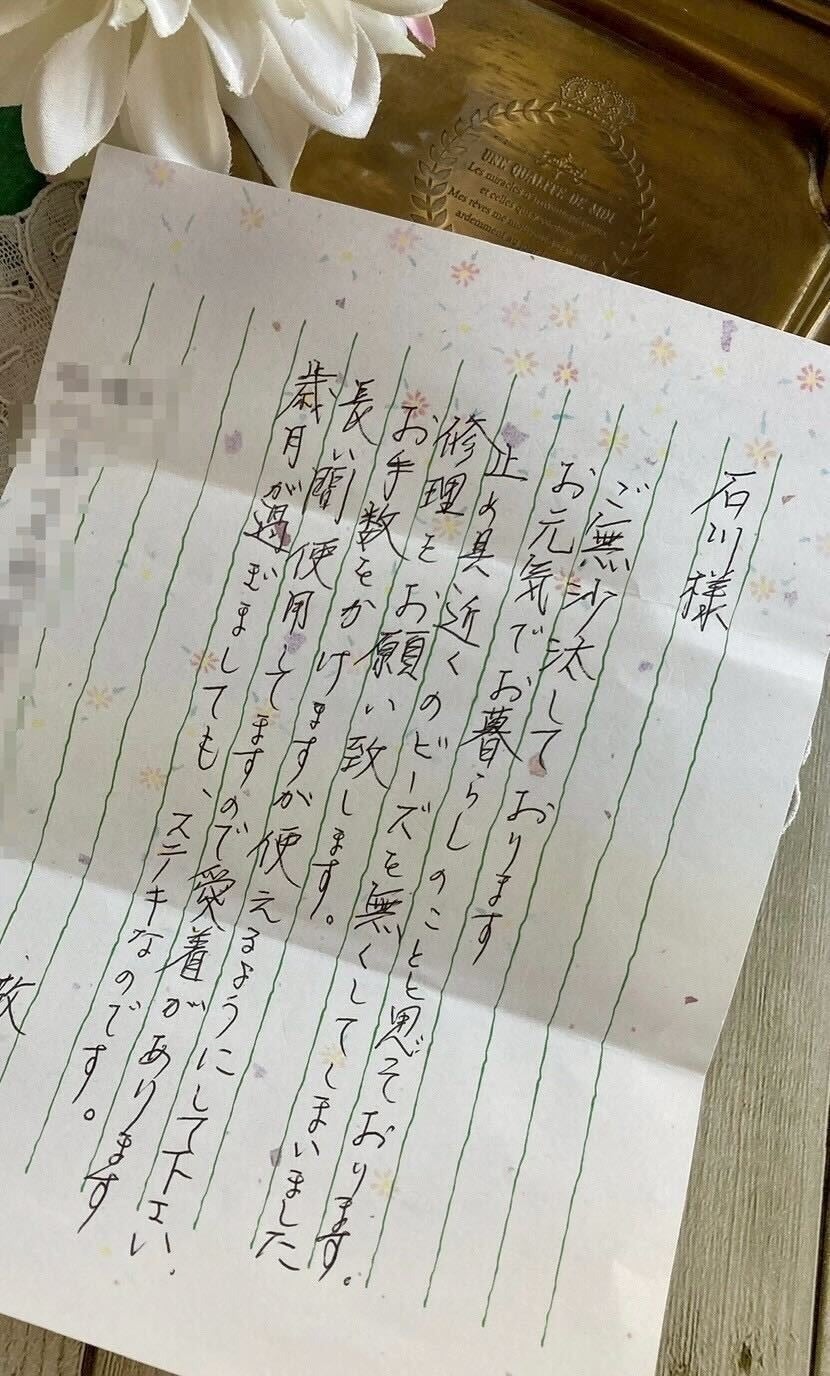 石川様
ご無沙汰しております
お元気でお暮らしのことと思ております。
止め具近くのビーズを無くしてしまいました
修理をお願い致します。
お手数をかけますが使えるようにして下さい.
長い間使用してますので愛着があります
歳月が過ぎましても、ステキなのです。
敬
UNE QUALITE DE MOI
Les miracles
et celles
Mes rêves me
ardemment au